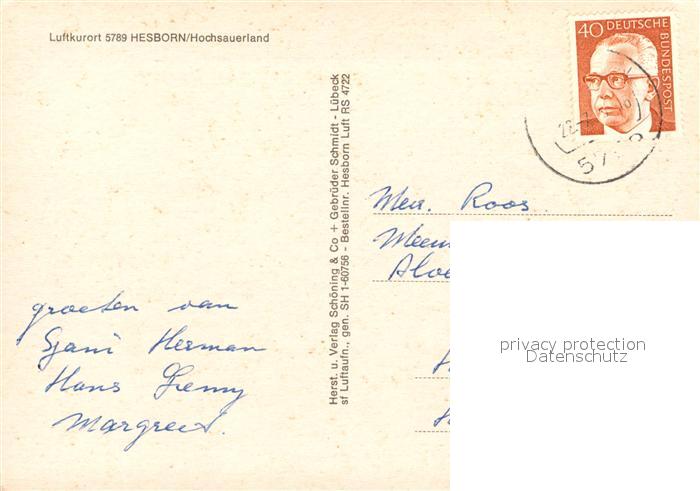 Luftkurort 5789 HESBORN/Hochsauerland
40 DEUTSCHE BUNDESPOST
Herst. u. Verlag Schöning & Co + Gebrüder Schmidt - Lübeck
sf Luftaufn., gen. SH 1-60756 - Bestellnr. Hesborn Luft RS 4722
Roos
groeten van
Sjani Herman
Hans
Margreet.
privacy protection
Datenschutz